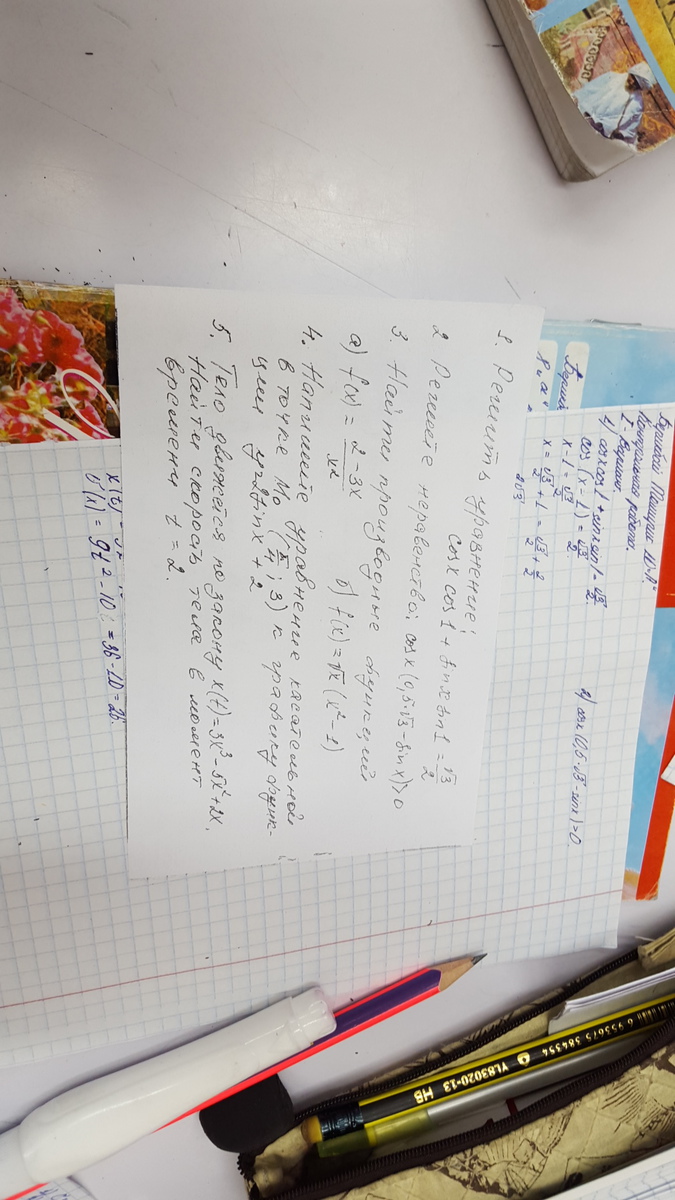 1. Решить уравнение:
cos x cos 1 + sin x sin 1 = √3/2
2. Решите неравенство: cos x (0,5√3 - sin x) > 0
3. Найти производные функций
а) f(x) = 2-3x/x² б) f(x) = √x (x² - 1)
4. Напишите уравнение касательной
в точке M₀ (π/4; 3) к графику функ-
ции y = 2 sin x + 2
5. Тело движется по закону x(t) = 3x³ - 5x² + 2x.
Найти скорость тела в момент
времени t = 2.
10 "А"
Контрольная работа.
I - Вариант
1) cos x cos 1 + sin x sin 1 = √3/2
cos (x - 1) = √3/2
x - 1 = √3/2
x = √3/2 + 1 = √3/2 + 2/2
2) cos x (0,5 · √3 - sin x) > 0
= 9t² - 10 = 36 - 10 = 26.
6 935675 384354
YL83020-13 HB